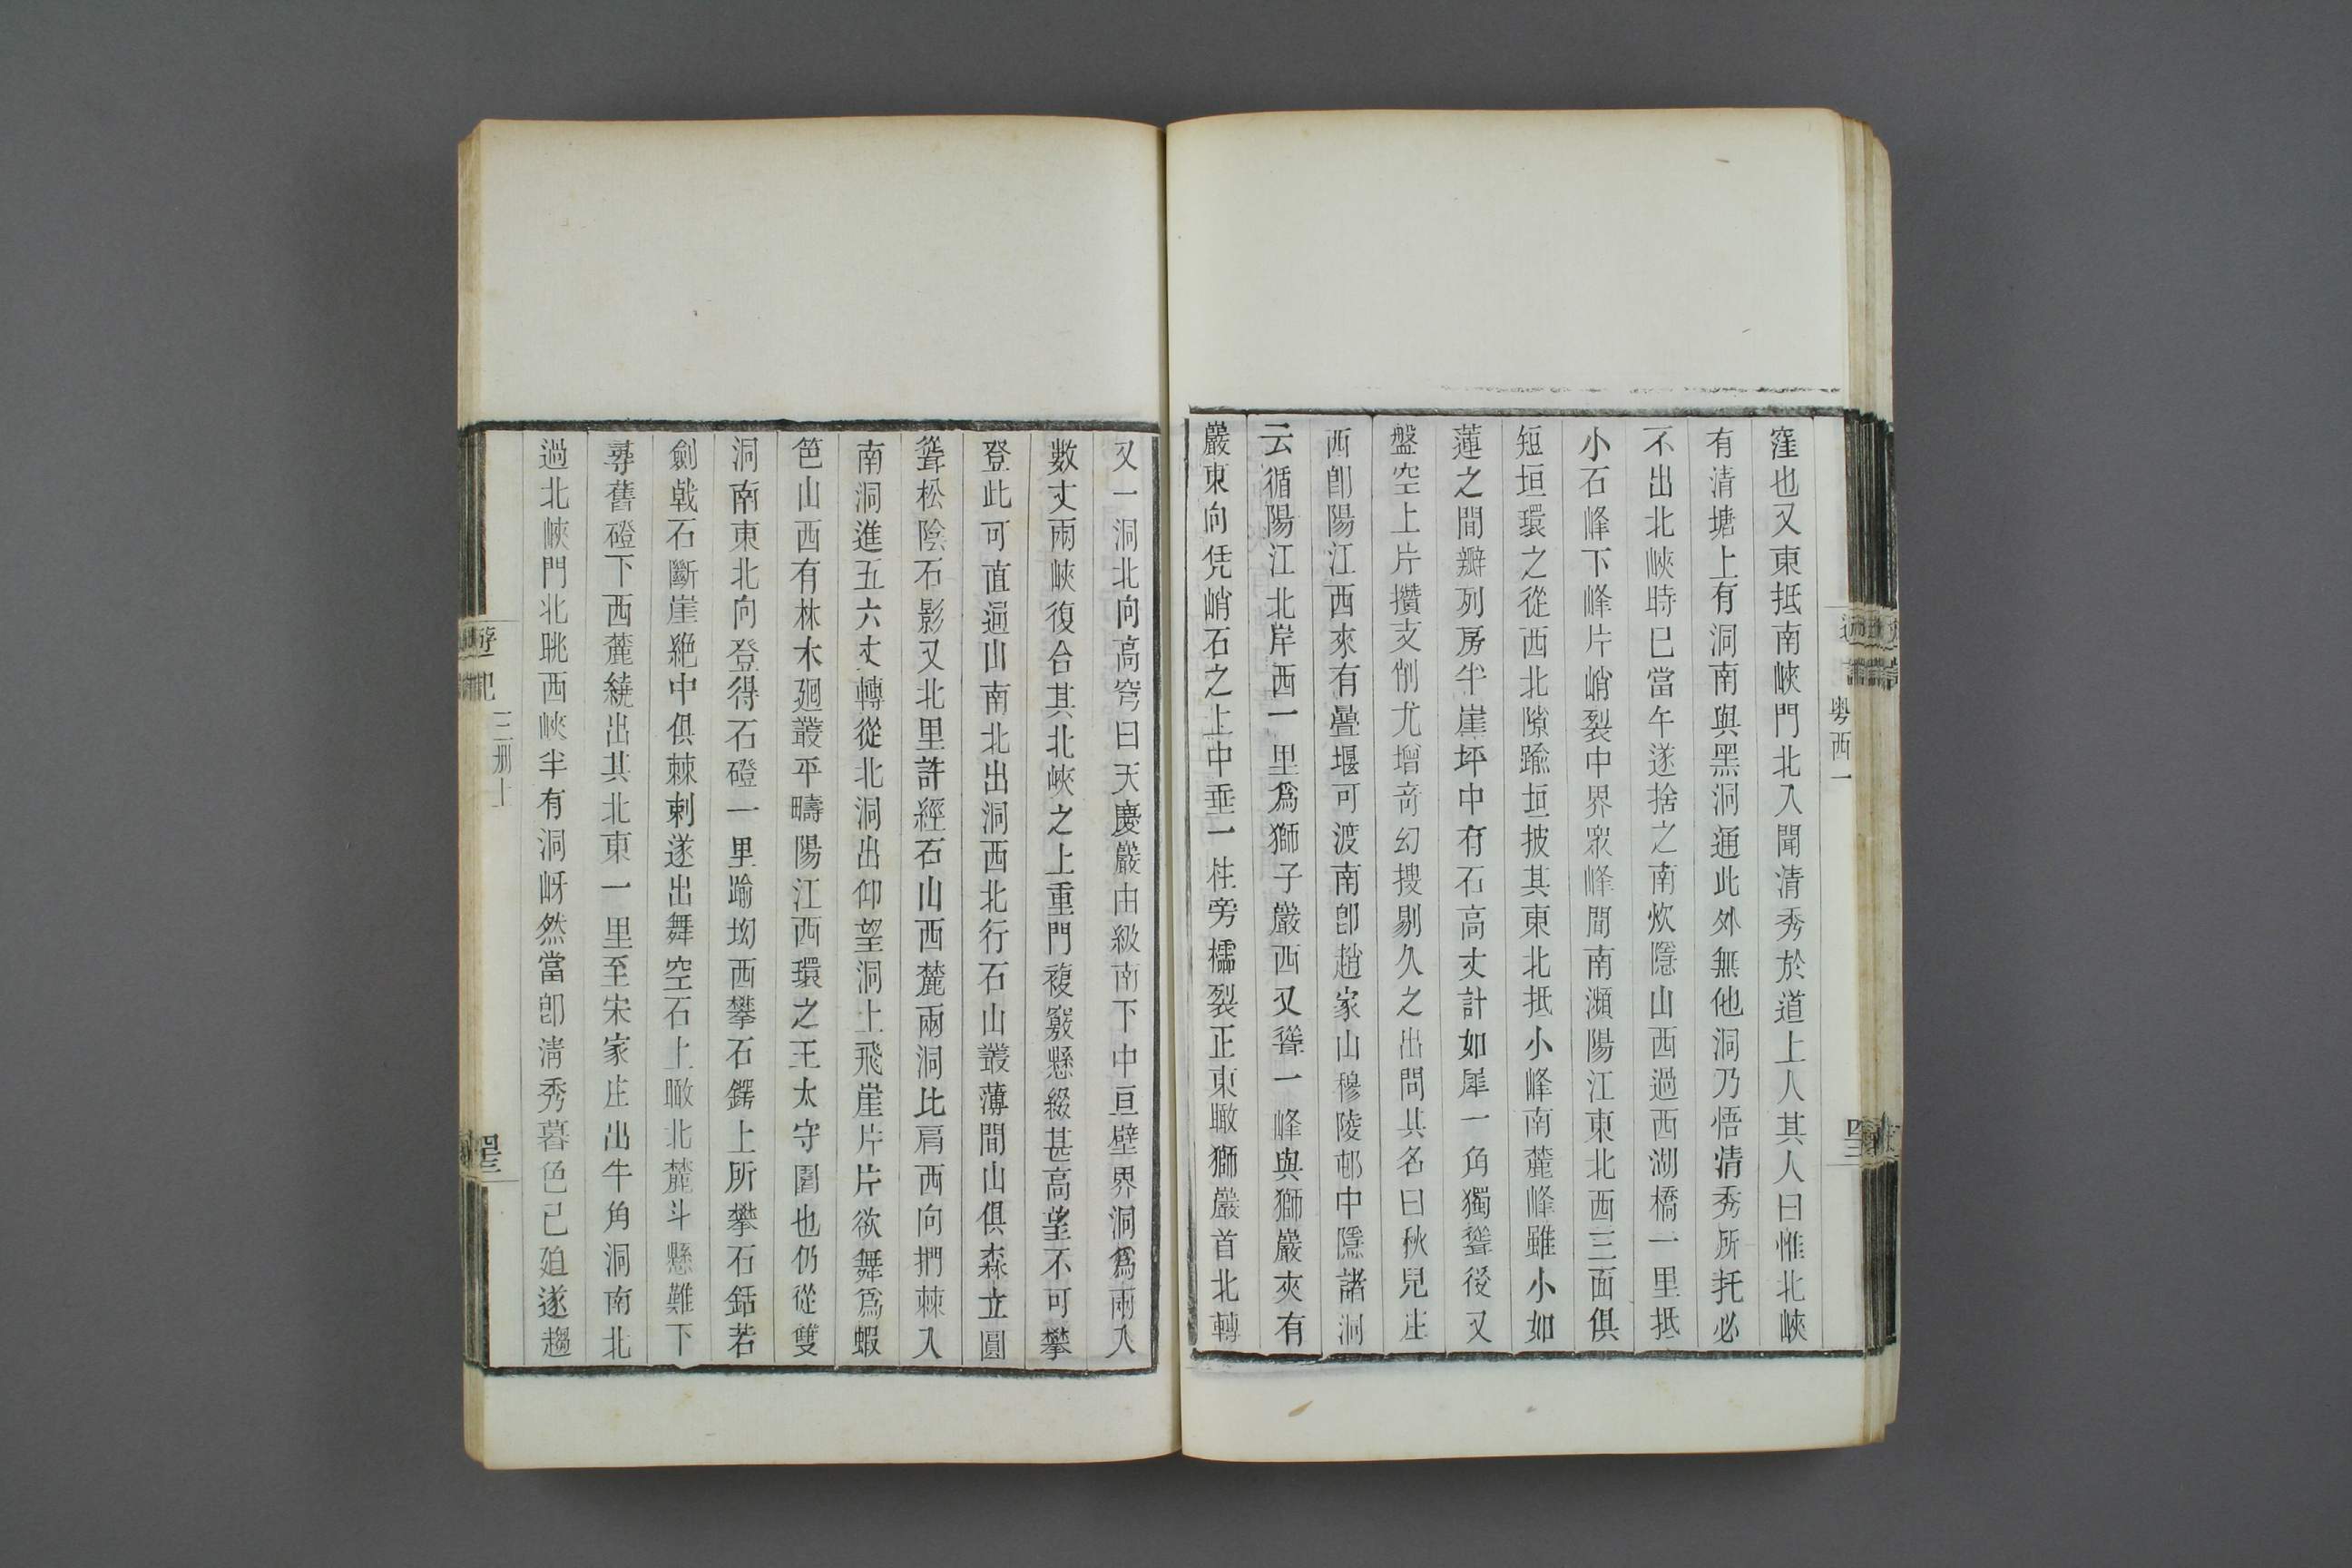 粤西一
窪也又東抵南峽門北入聞清秀於道上人其人曰惟北峽
有清塘上有洞南與黑洞通此外無他洞乃悟清秀所托必
不出北峽時已當午遂捨之南炊隱山西過西湖橋一里抵
小石峰下峰片峭裂中界衆峰間南瀕陽江東北西三面俱
短垣環之從西北隙踰垣披其東北抵小峰南麓峰雖小如
蓮之間瓣列房半崖坪中有石高丈計如犀一角獨聳後又
盤空上片攢支削尤增奇幻搜剔久之出問其名曰秋兒庄
西卽陽江西來有疊堰可渡南卽趙家山穆陵邨中隱諸洞
云循陽江北岸西一里爲獅子巖西又聳一峰與獅巖夾有
巖東向凭峭石之上中垂一柱旁檽裂正東瞰獅巖首北轉
又一洞北向高穹曰天慶巖由級南下中亘壁界洞爲兩入
數丈兩峽復合其北峽之上重門複竅懸綴甚高望不可攀
登此可直逼山南北出洞西北行石山叢薄間山俱森立圓
聳松陰石影又北里許經石山西麓兩洞比肩西向捫棘入
南洞進五六丈轉從北洞出仰望洞上飛崖片片欲舞爲蝦
笆山西有林木廻叢平疇陽江西環之王太守圍也仍從雙
洞南東北向登得石磴一里踰坳西攀石鍔上所攀石銛若
劍戟石斷崖絶中俱棘刺遂出舞空石上瞰北麓斗懸難下
尋舊磴下西麓繞出其北東一里至宋家庄出牛角洞南北
過北峽門北眺西峽半有洞岈然當卽清秀暮色已廹遂趨
遊記
三册上